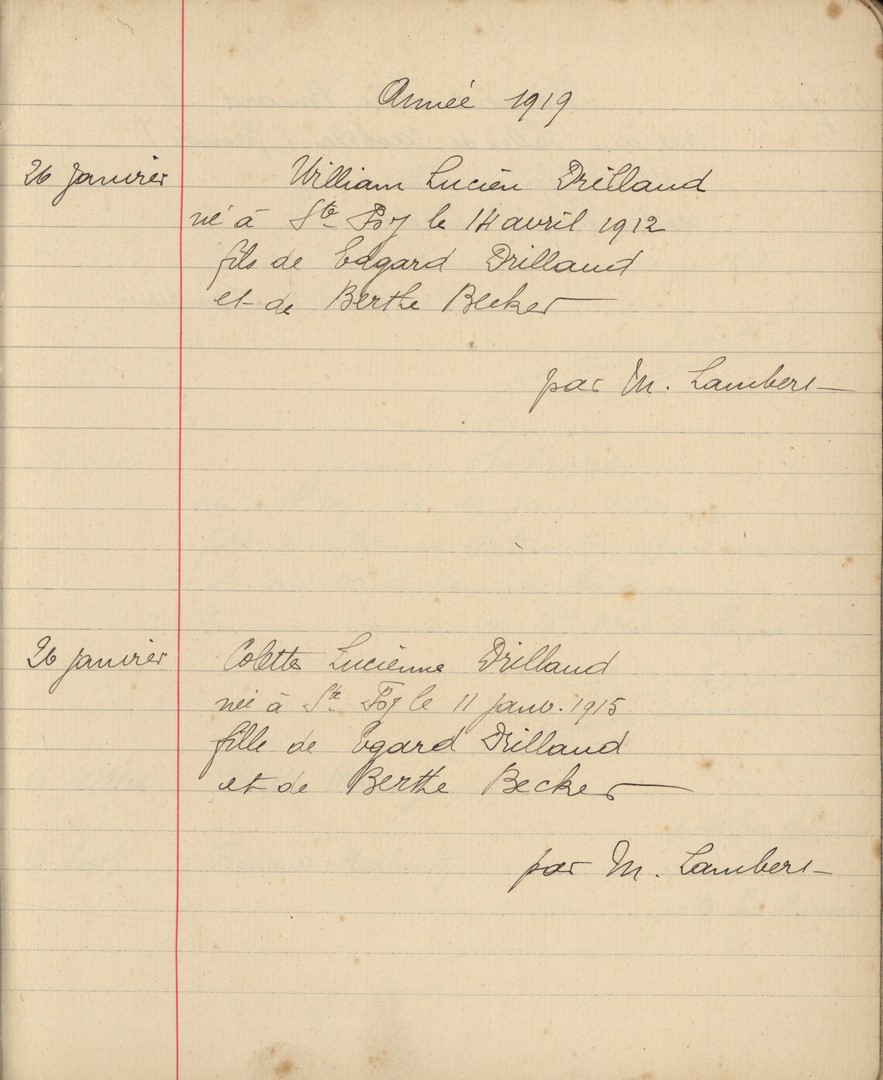 Année 1919
26 Janvier William Lucien Drilland
né à Ste Foy le 14 avril 1912
fils de Edgard Drilland
et de Berthe Becker
par M. Lambert
26 Janvier Colette Lucienne Drilland
née à Ste Foy le 11 janv. 1915
fille de Egard Drilland
et de Berthe Becker
par M. Lambert